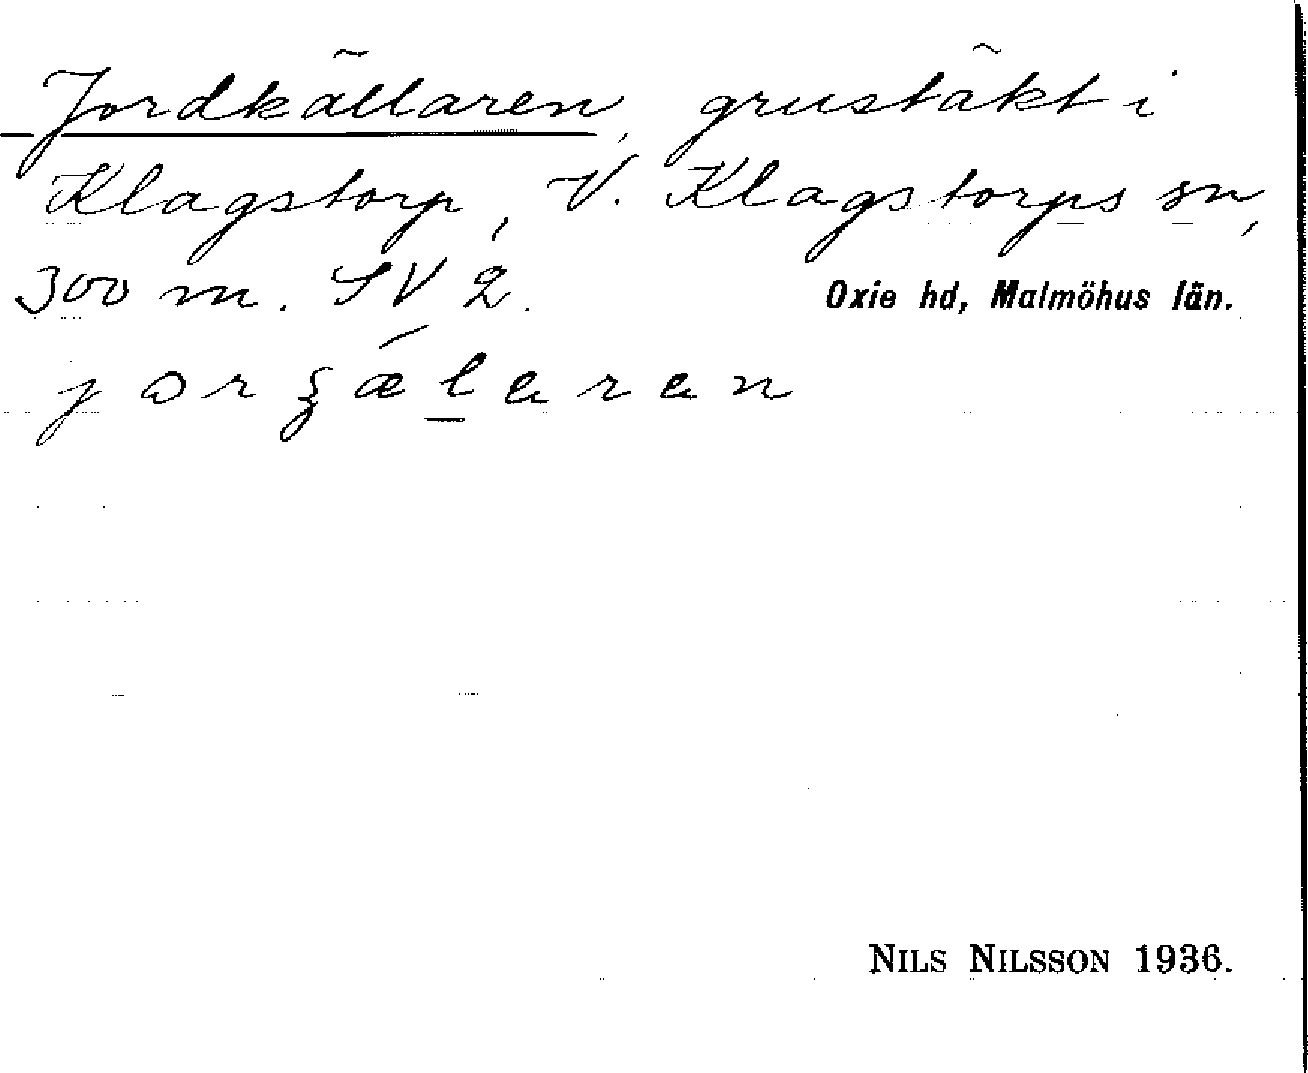 Jordkällaren, grustäkt i
Klagstorp, V. Klagstorps sn,
300 m. SV 2.
Oxie hd, Malmöhus län.
NILS NILSSON 1936.